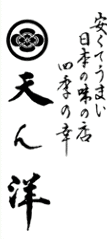 安くてうまい
日本の味の店
四季の幸
天ん洋